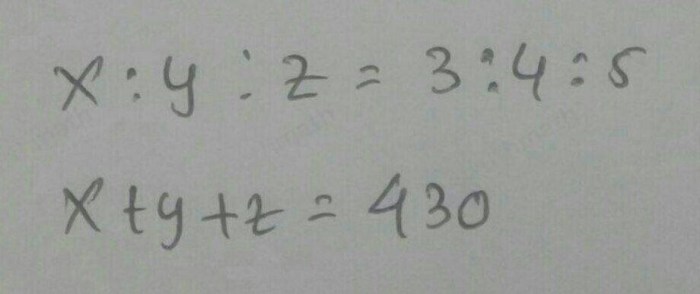 x : y : z = 3 : 4 : 5
x + y + z = 430